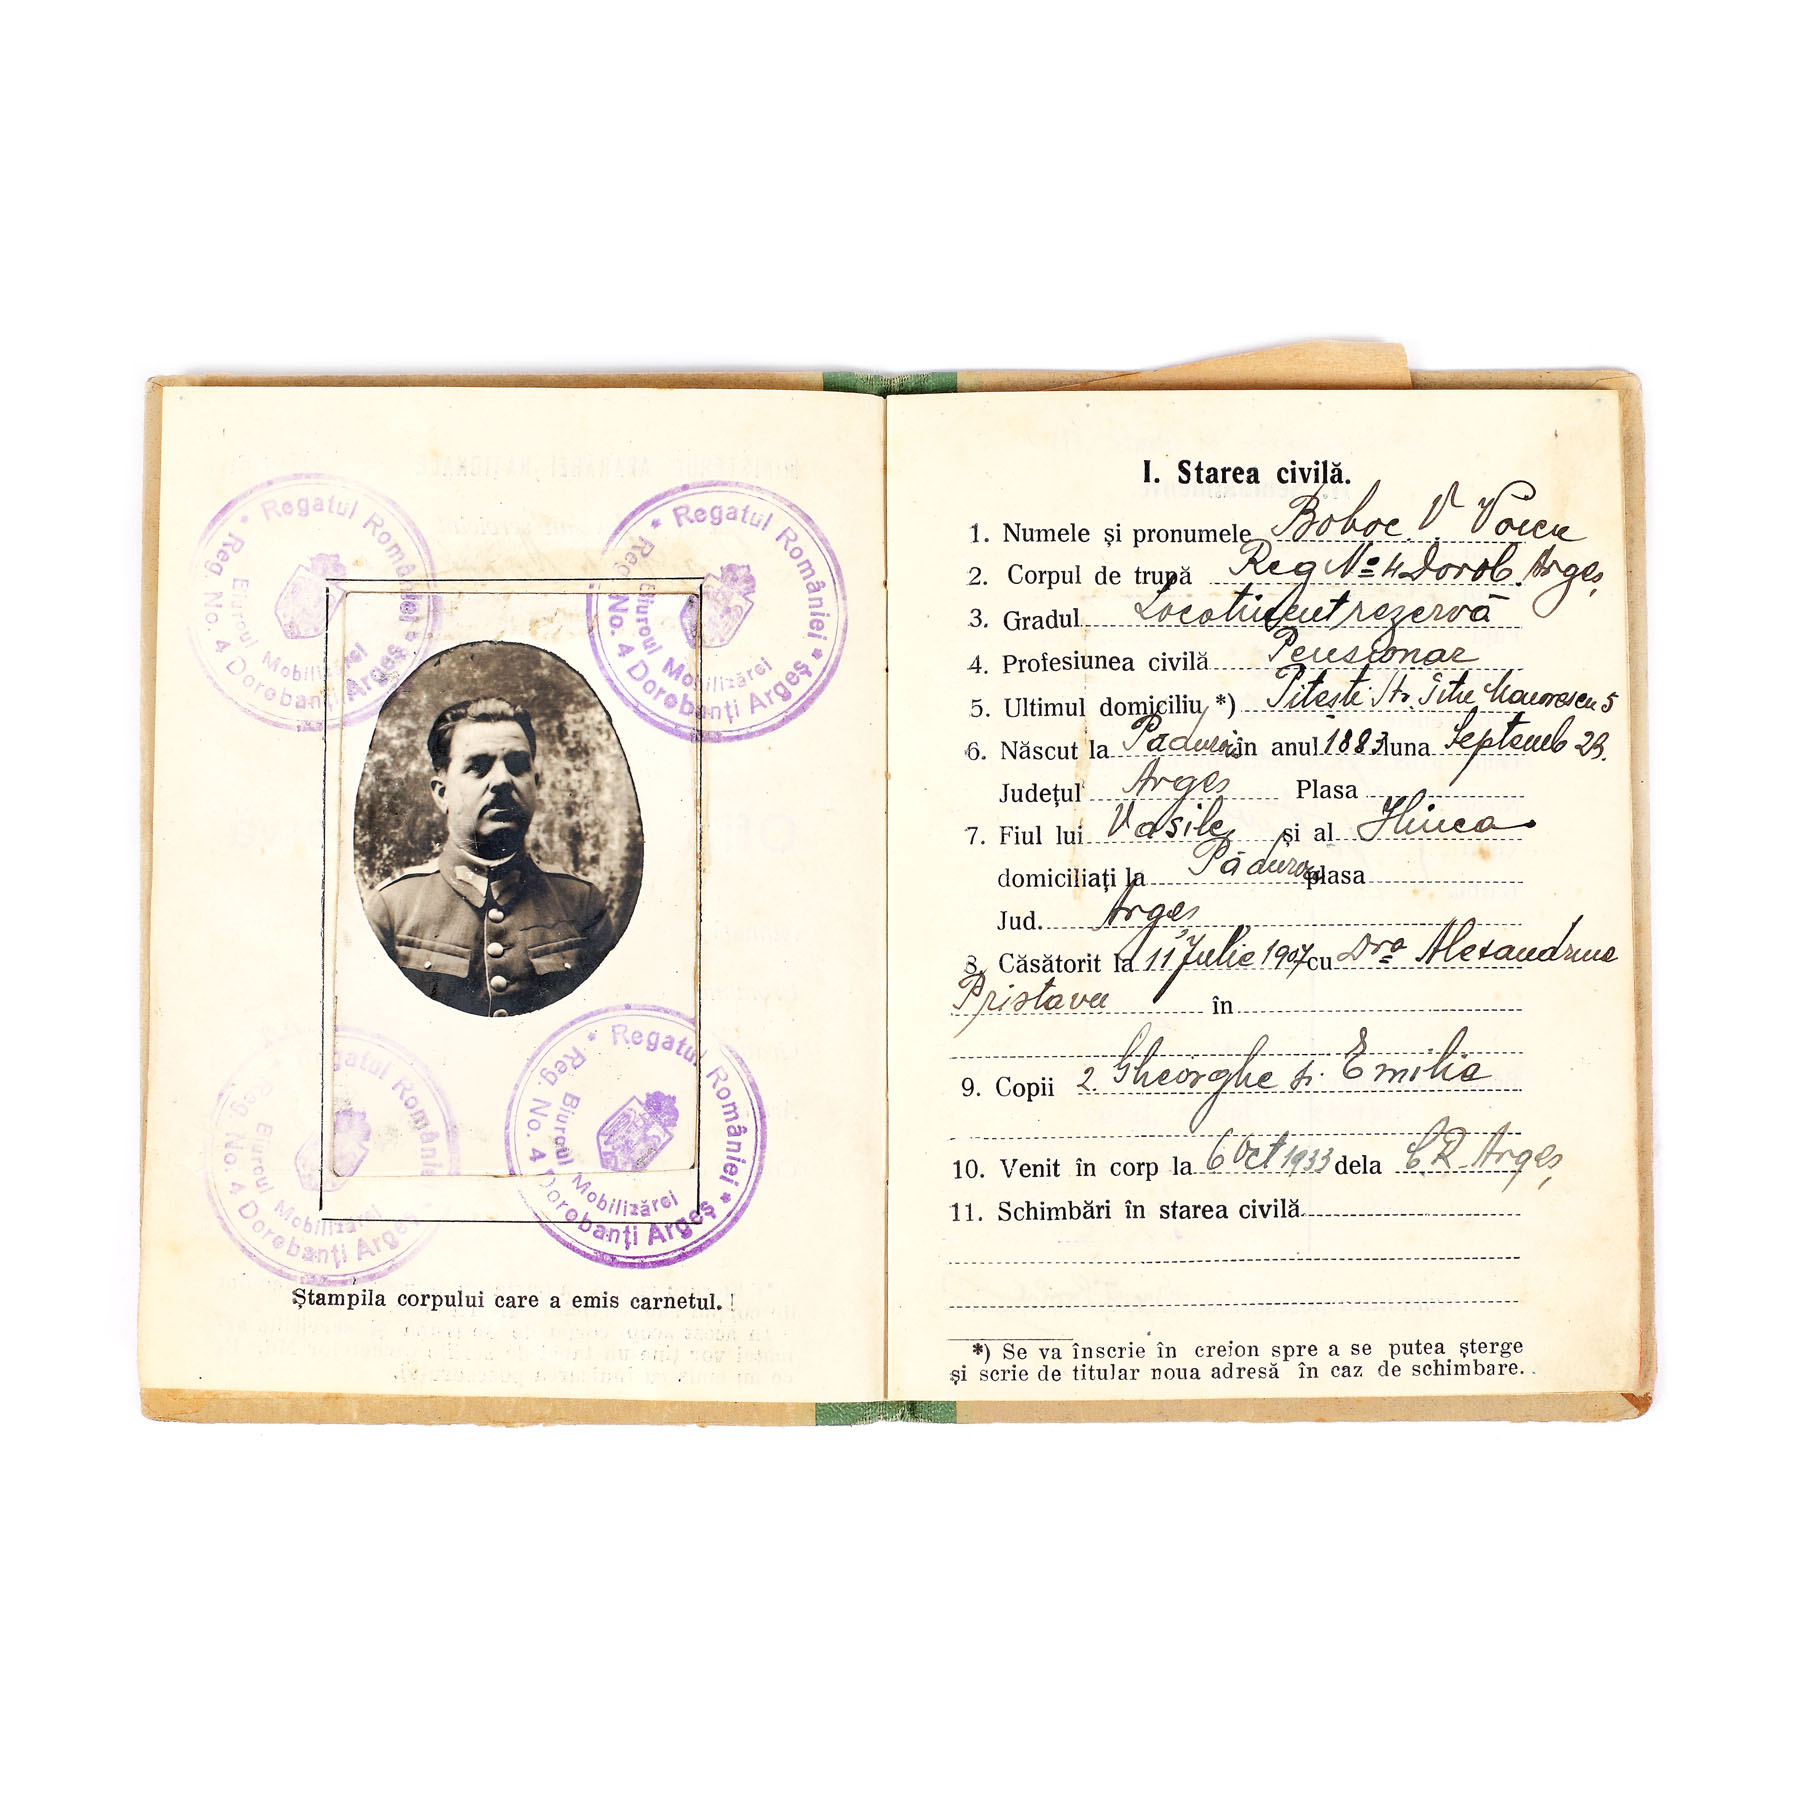 * Regatul României *
Reg. No. 4 Dorobanți Argeș
Biuroul Mobilizărei
* Regatul României *
Reg. No. 4 Dorobanți Argeș
Biuroul Mobilizărei
Regatul României
Reg. No. 4 Dorobanți Argeș
Biuroul Mobilizărei
* Regatul României *
Reg. No. 4 Dorobanți Argeș
Biuroul Mobilizărei
Ștampila corpului care a emis carnetul.
I. Starea civilă.
1. Numele și pronumele Boboc V. Voicu
2. Corpul de trupă Reg No 4 Dorob. Argeș
3. Gradul Locotinent rezervă
4. Profesiunea civilă Pensionar
5. Ultimul domiciliu *) Pitești Str. Titu Maiorescu 5
6. Născut la în anul 1883 luna Septemb 23.
Județul Argeș Plasa
7. Fiul lui Vasile și al Ilinca
domiciliați la plasa
Jud. Argeș
8. Căsătorit la 11 Julie 1907 cu Dra Alexandrina
Pristavu în
9. Copii 2. Gheorghe și Emilia
10. Venit în corp la 6 Oct 1933 dela C R Argeș
11. Schimbări în starea civilă
*) Se va înscrie în creion spre a se putea șterge
și scrie de titular noua adresă în caz de schimbare.